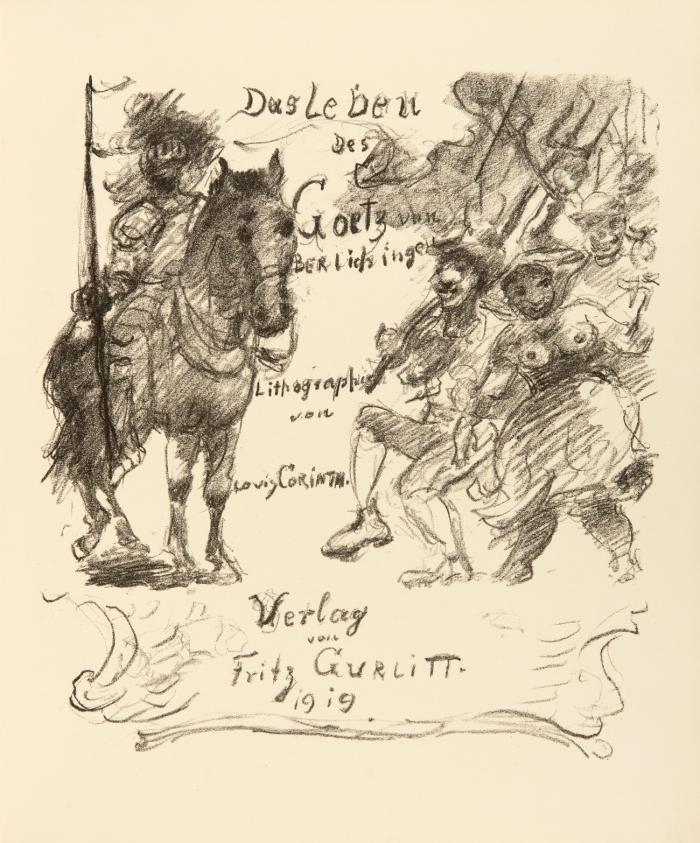 Das Leben
Des
Goetz von
BERLichingen
Lithographien
von
Louis CORINTH.
Verlag
von
Fritz GURLITT.
1919